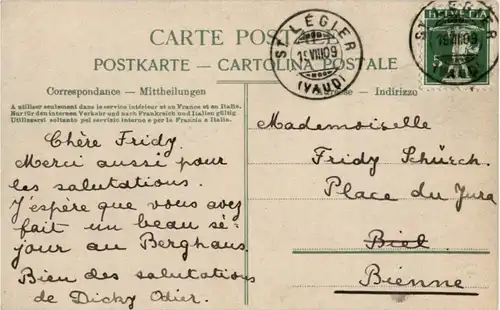 CARTE POSTALE
POSTKARTE — CARTOLINA POSTALE
Correspondance — Mittheilungen
Adresse — Indirizzo
A utiliser seulement dans le service intérieur et en France et en Italie.
Nur für den internen Verkehr und nach Frankreich und Italien gültig
Utilizzarsi soltanto pel servizio interno e per la Francia e Italia.
ST LÉGIER
19.VIII.09
(VAUD)
HELVETIA
5
ST LÉGIER
19.VIII.09
(VAUD)
Chère Fridy.
Merci aussi pour
les salutations.
J'espère que vous avez
fait un beau sé-
jour au Berghaus.
Bien des salutations
de Dicky Odier.
Mademoiselle
Fridy Schürch.
Place du Jura
Biel
Bienne